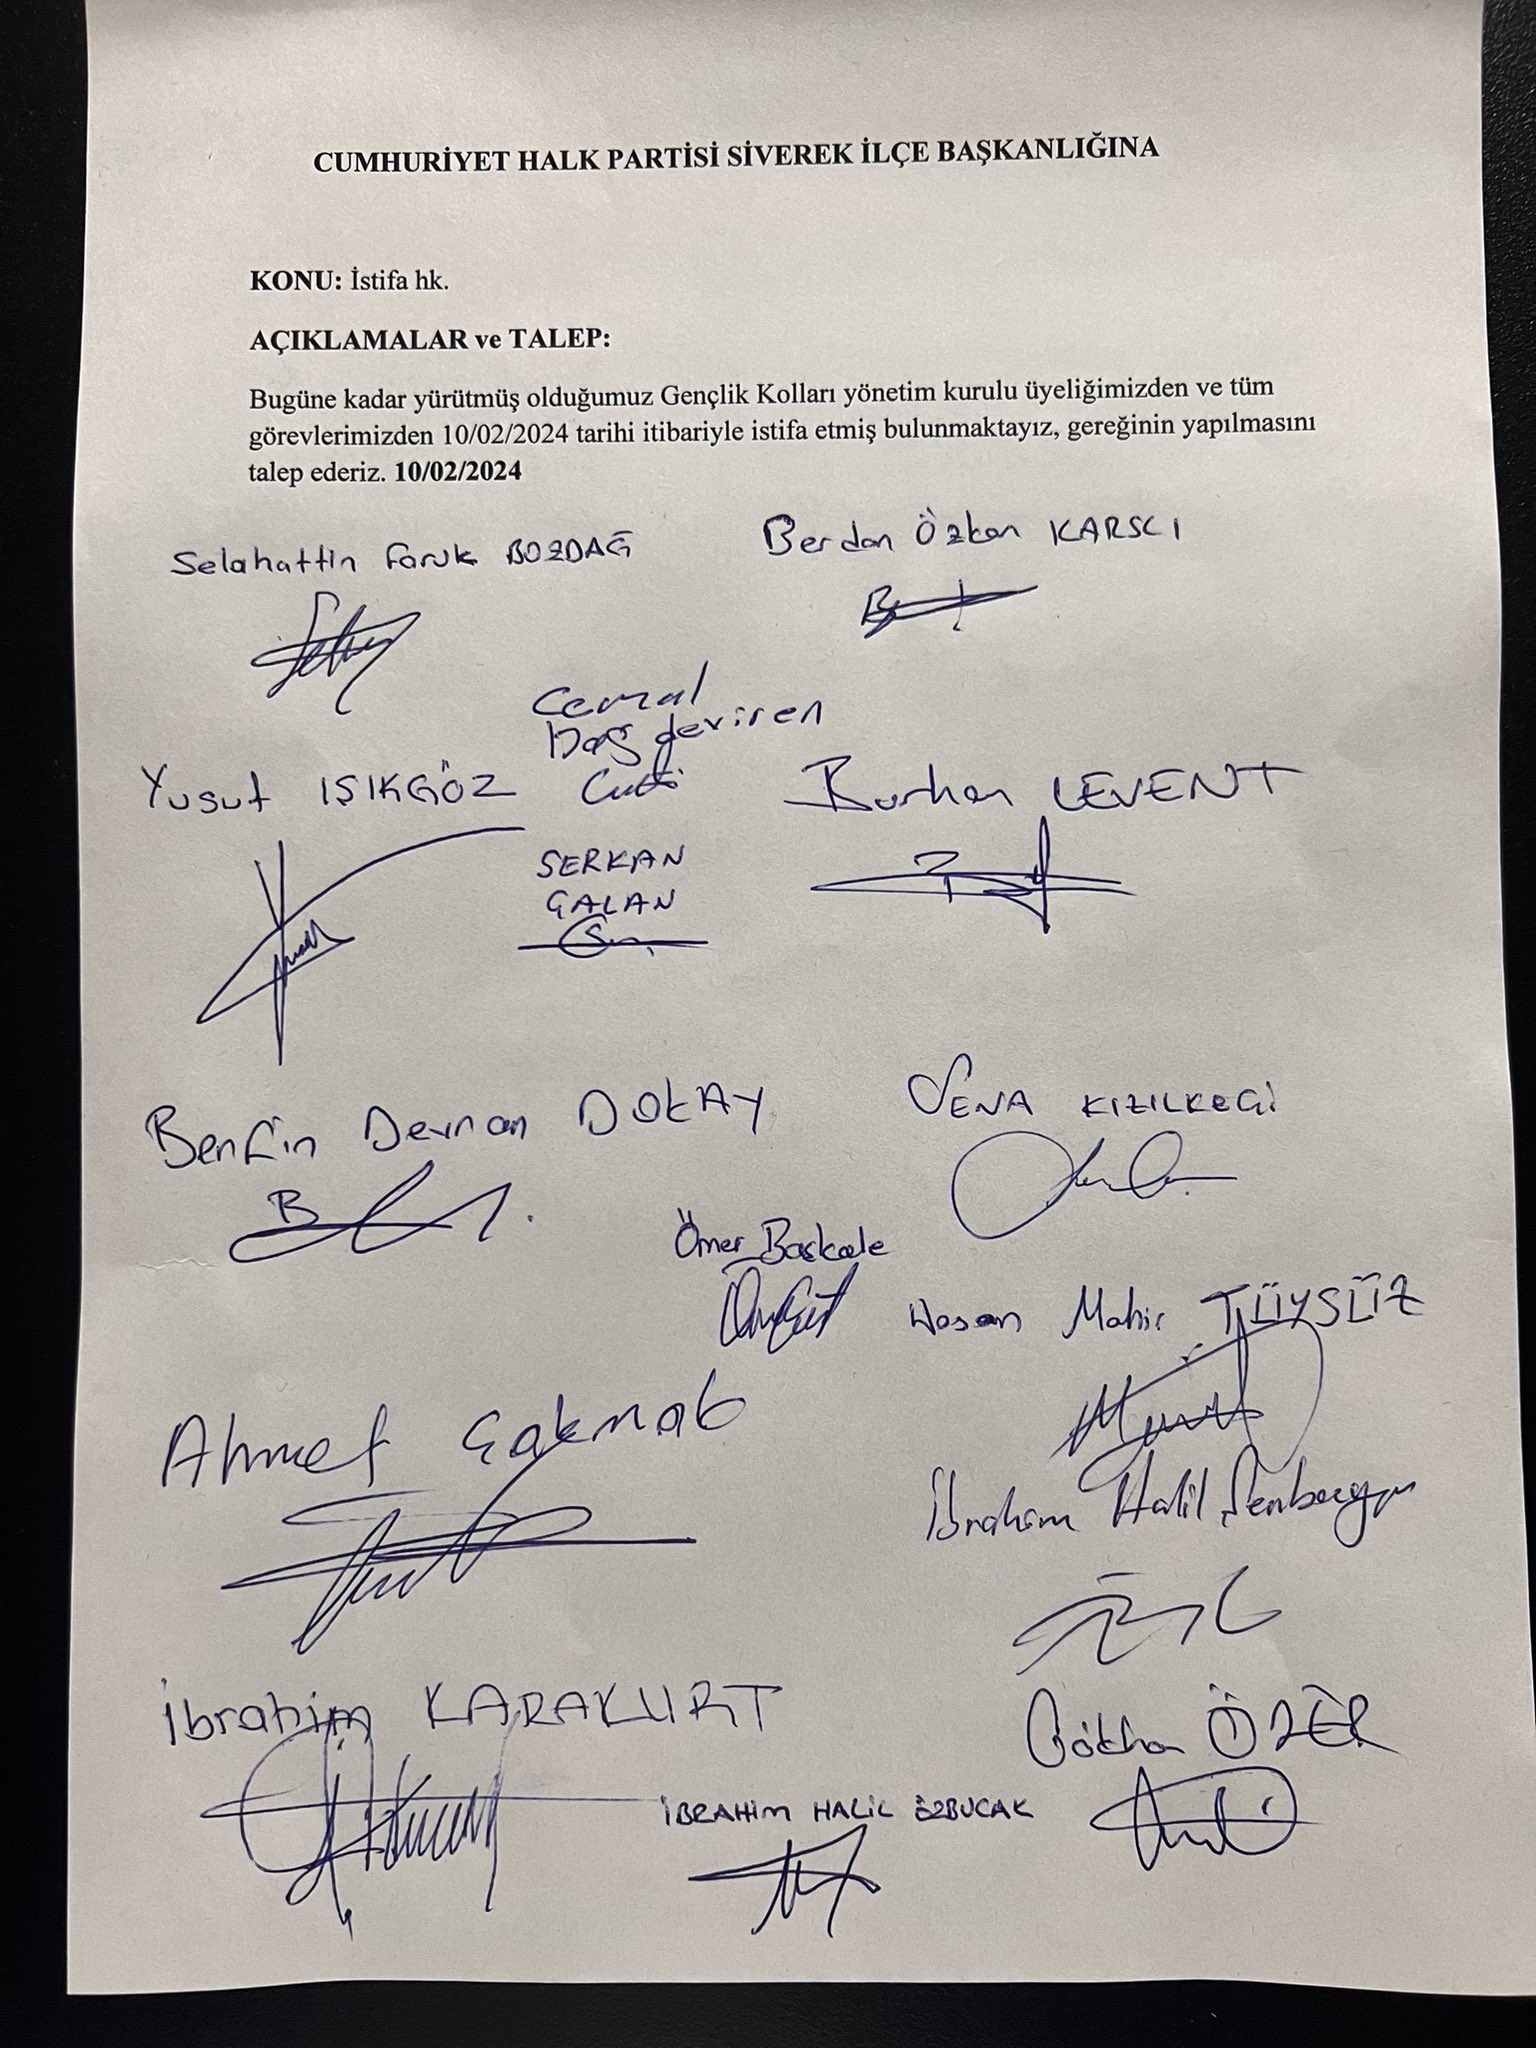 CUMHURİYET HALK PARTİSİ SİVEREK İLÇE BAŞKANLIĞINA
KONU: İstifa hk.
AÇIKLAMALAR ve TALEP:
Bugüne kadar yürütmüş olduğumuz Gençlik Kolları yönetim kurulu üyeliğimizden ve tüm
görevlerimizden 10/02/2024 tarihi itibariyle istifa etmiş bulunmaktayız, gereğinin yapılmasını
talep ederiz. 10/02/2024
Selahattin Faruk BOZDAĞ
Berdan Özkan KARSCI
Cemal
Dağdeviren
Yusuf IŞIKGÖZ
Burhan LEVENT
SERKAN
ÇALAN
Berfin Devran DOKAY
SENA KIZILKEÇİ
Ömer Başkale
Hasan Mahir TÜYSÜZ
Ahmet Çakmak
İbrahim Halil
İbrahim KARAKURT
Gökhan ÖZER
İBRAHİM HALİL ÖZBUCAK